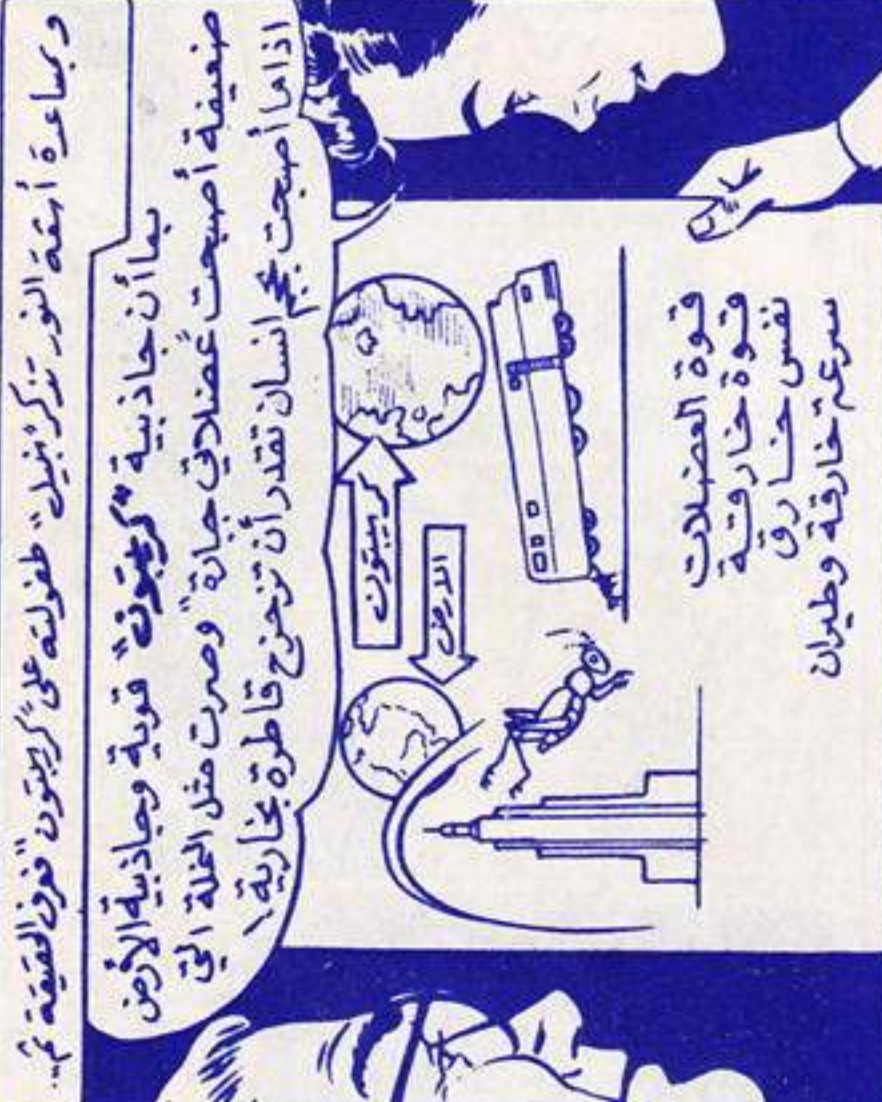 وبمساعدة أشعة النور تذكر "نبيل" طفولته على "كريبتون" فعرف الحقيقة ثم...
بما أن جاذبية "كريبتون" قوية وجاذبية الأرض
ضعيفة أصبحت عضلاتي جبارة" وصرت مثل النملة التي
اذا ما أصبحت بحجم انسان تقدر أن تزحزح قاطرة بخارية\
كريبتون
الارض
قوة العضلات
قوة خارقة
نفس خارق
سرعة خارقة وطيران